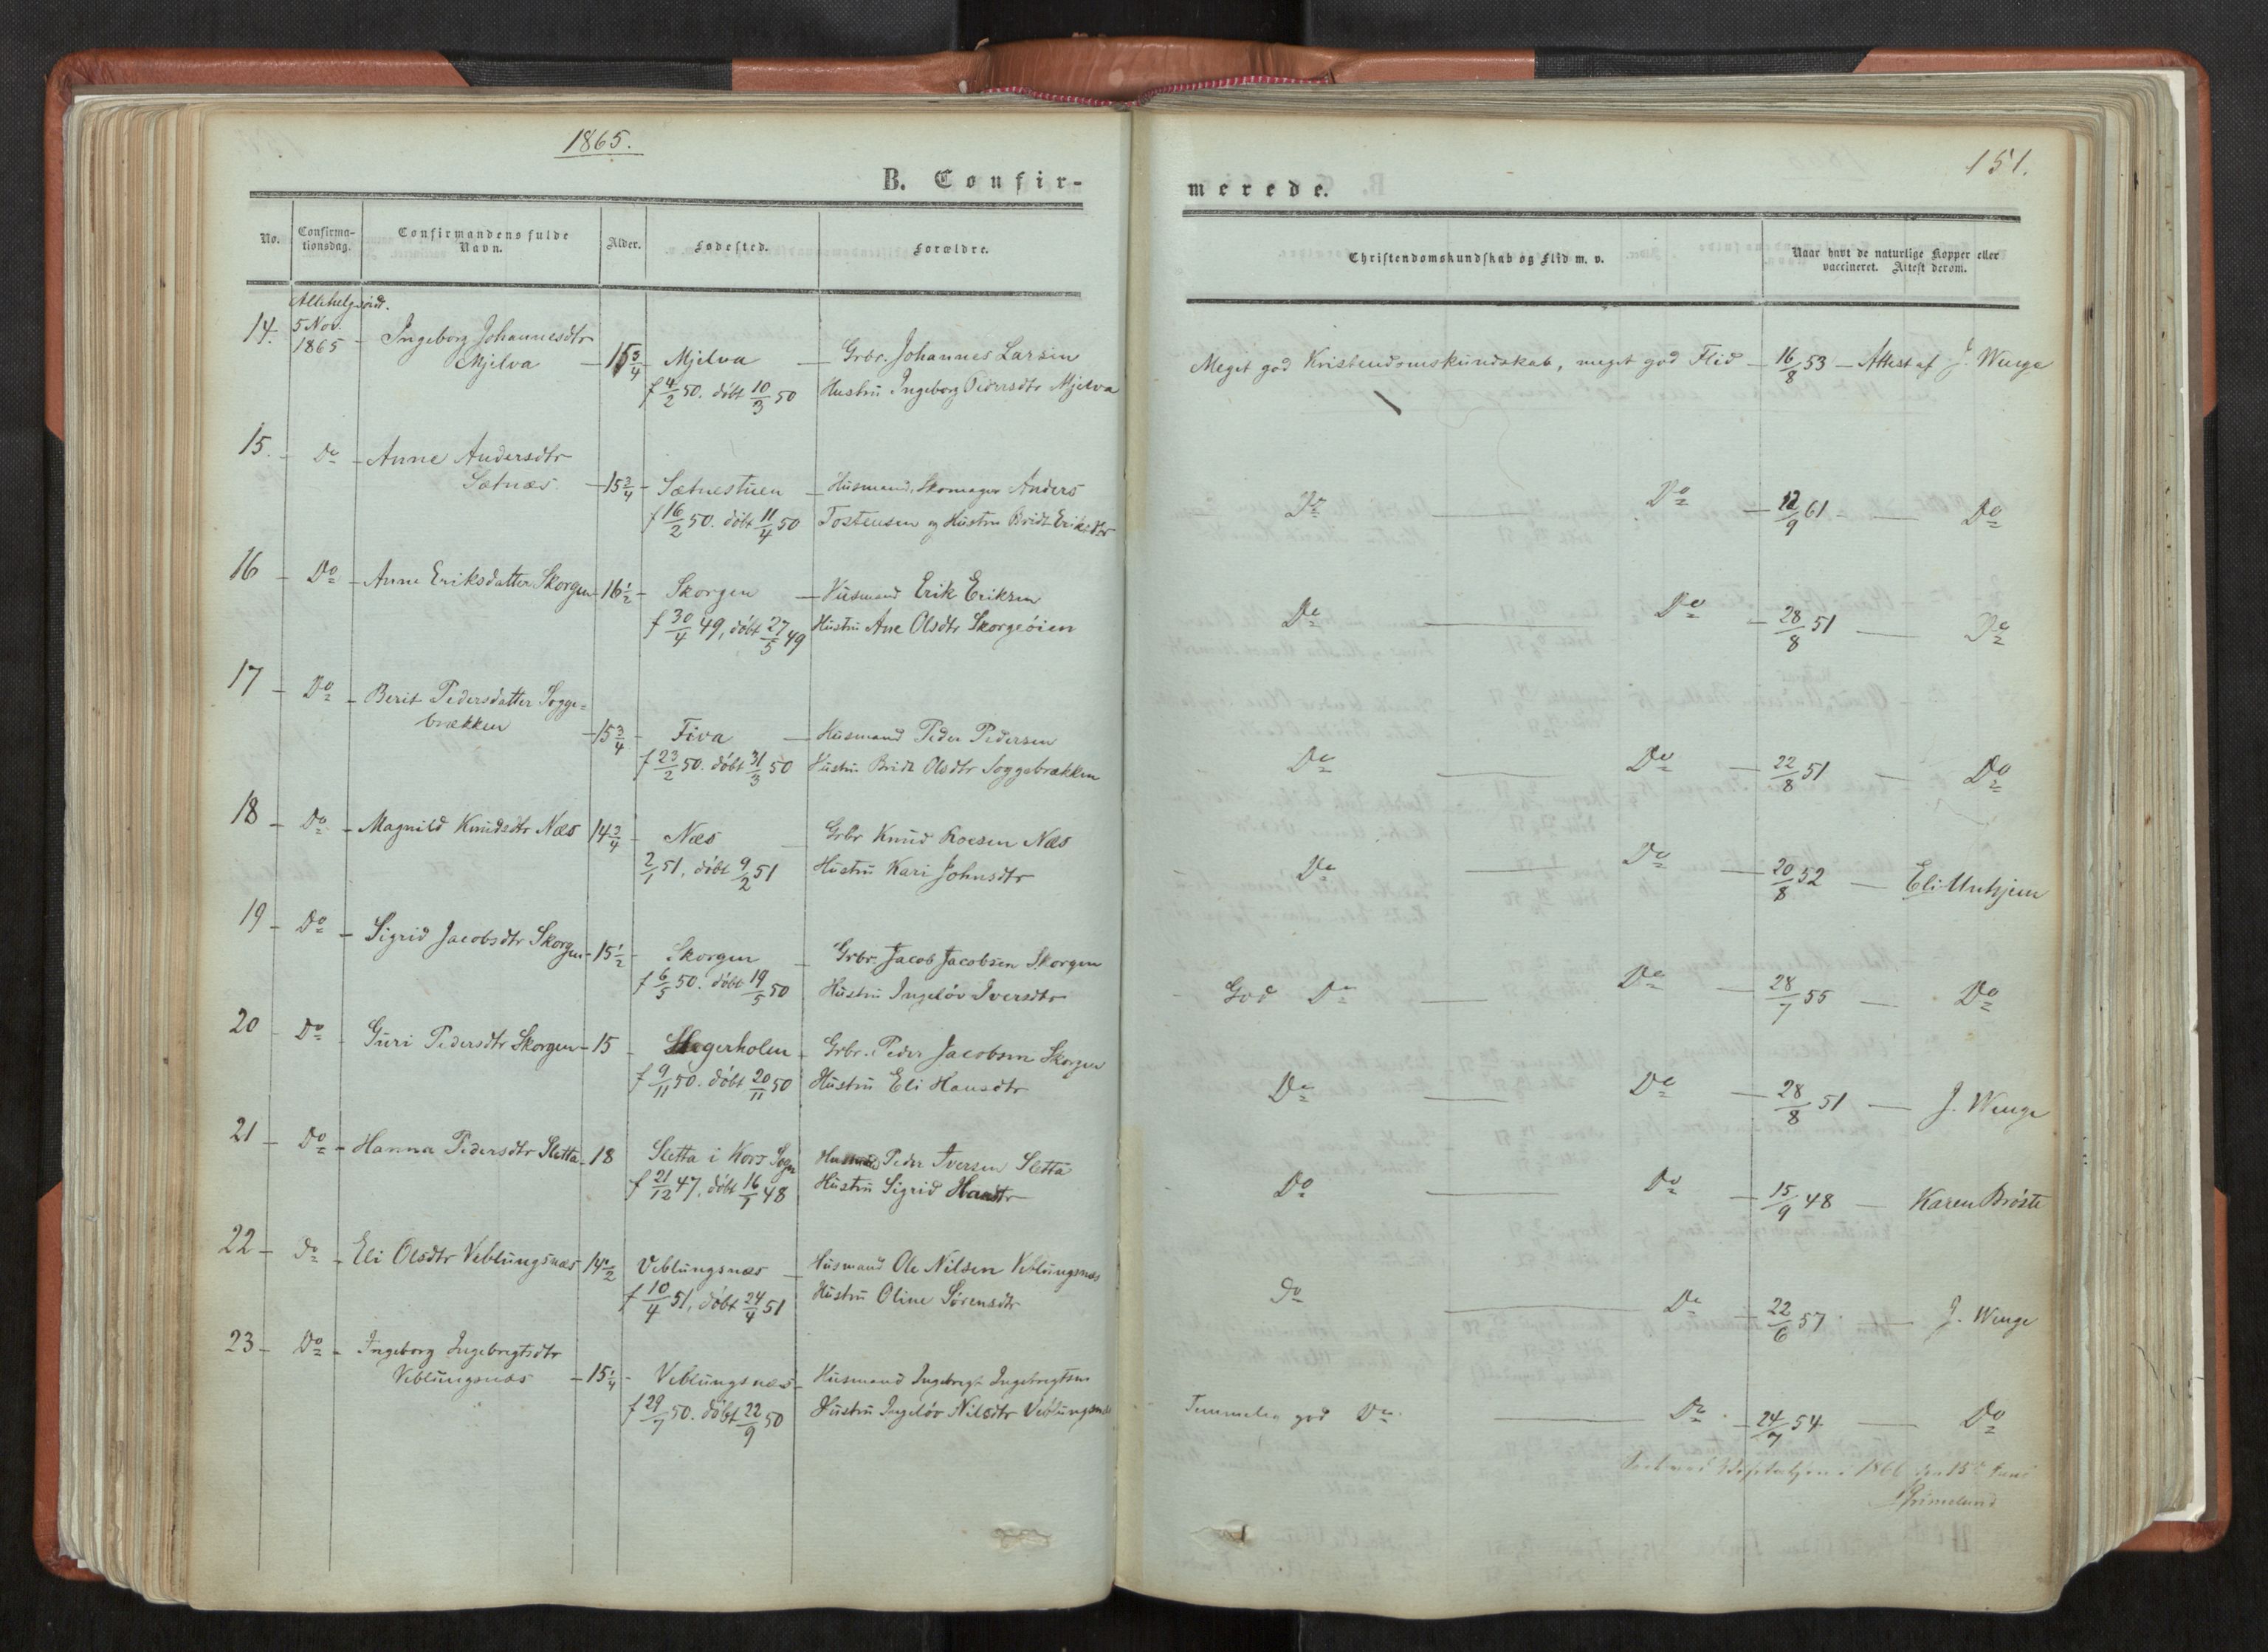 1865.
B. Confir-
No.
Confirma-
tionsdag.
Confirmandens fulde
Navn.
Alder.
Fødested.
Forældre.
Allehelgensd.
14. 5 Nov. 1865 - Ingeborg Johannesdtr
Mjelva - 15 3/4 - Mjelva - Grbr. Johannes Larsen
f 4/2 50. döbt 10/3 50 Hustru Ingeborg Pedersdtr Mjelva
15. - Do - Anne Andersdtr
Sætnæs - 15 3/4 - Sætnestuen - Husmand, Skomager Anders
f 16/2 50. döbt 11/4 50 Tostensen og Hustru Bridt Eriksdtr
16 - Do - Anne Eriksdatter Skorgen - 16 1/2 - Skorgen - Husmand Erik Eriksen
f 30/4 49, döbt 27/5 49 Hustru Ane Olsdtr Skorgeöien
17 - Do - Berit Pedersdatter Sogge=
brækken - 15 3/4 - Fiva - Husmand Peder Pedersen
f 23/2 50. döbt 31/3 50 Hustru Bridt Olsdtr Soggebrækken
18 - Do - Magnild Knudsdtr Næs 14 3/4 - Næs - Grbr Knud Roesen Næs
2/1 51, döbt 9/2 51 Hustru Kari Johnsdtr
19 - Do - Sigrid Jacobsdtr Skorgen - 15 1/2 - Skorgen - Grbr. Jacob Jacobsen Skorgen
f 6/5 50. döbt 19/5 50 Hustru Ingelöv Iversdtr
20 - Do - Guri Pedersdtr Skorgen - 15 - Slegerholen - Grbr. Peder Jacobsen Skorgen
f 9/11 50. döbt 20/11 50 Hustru Eli Hansdtr
21 - Do - Hanna Pedersdtr Sletta - 18 Sletta i Kors Sogn Husmand Peder Iversen Sletta
f 21/12 47, döbt 16/1 48 Hustru Sigrid Hansdtr
22 - Do - Eli Olsdtr Veblungsnæs 14 1/2 Veblungsnæs - Husmand Ole Nilsen Veblungsnæs
f 10/4 51, döbt 24/4 51 Hustru Oline Sörensdtr
23 - Do - Ingeborg Ingebrigtsdtr
Veblungsnæs - 15 1/4 - Veblungsnæs - Husmand Ingebrigt Ingebrigtsen
f 29/7 50. döbt 22/9 50 Hustru Ingelöv Nilsdtr Veblungsnæs
151.
merede.
Christendomskundskab og Flid m. v.
Naar havt de naturlige Kopper eller
vaccineret. Attest derom.
Meget god Kristendomskundskab, meget god Flid - 16/8 53 - Attest af J. Wenge
Do Do - 12/9 61 - Do
Do Do - 28/8 51 - Do
Do Do - 22/8 51 - Do
Do Do - 20/8 52 - Eli Unhjem
God Do - Do - 28/7 55 - Do
Do Do - 28/8 51 - J. Wenge
Do Do - 15/9 48 - Karen Bröste
Do Do - 22/6 57 - J. Wenge
Temmelig god Do - Do - 24/7 54 - Do
Seet ved Visitatsen i 1866 den 15de Juni
Grimelund